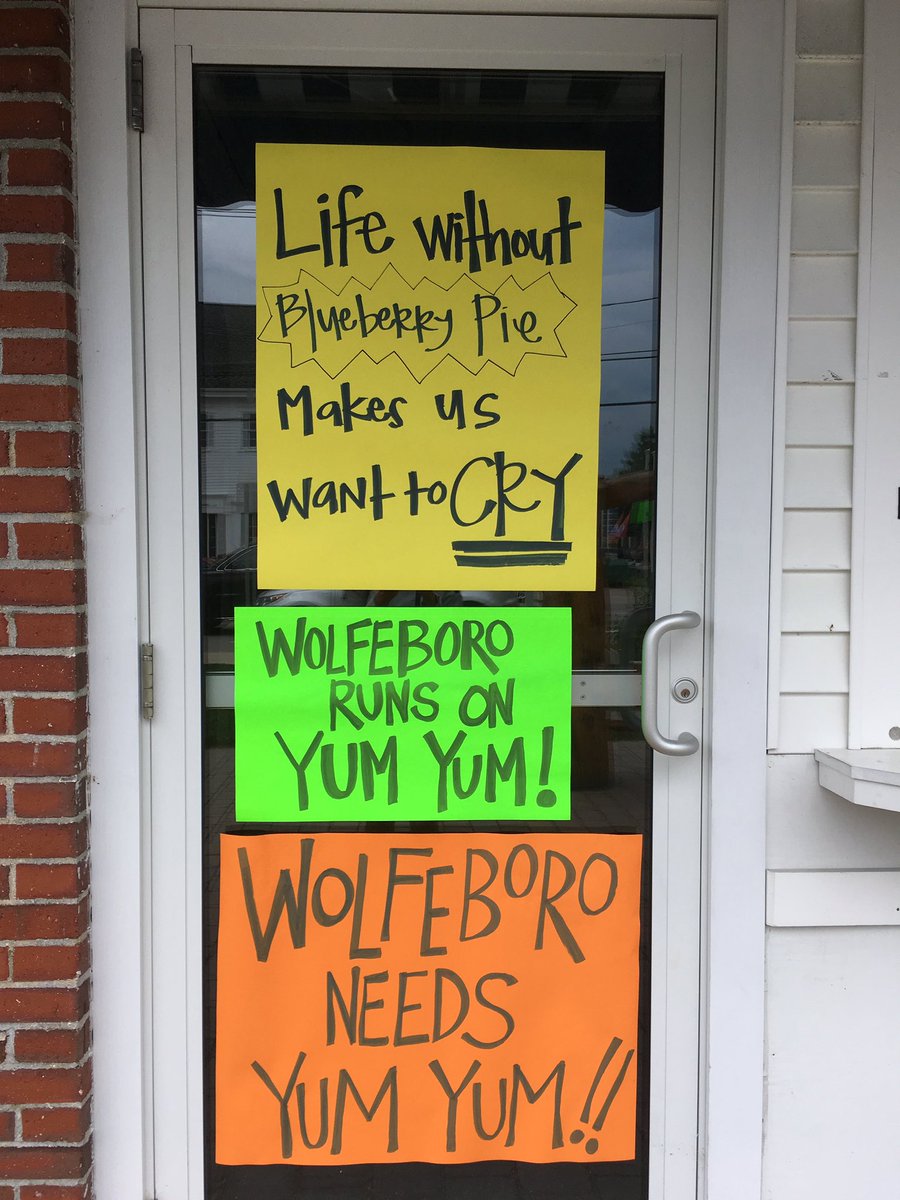 Life without
Blueberry Pie
Makes us
want to CRY
WOLFEBORO
RUNS ON
YUM YUM!
WOLFEBORO
NEEDS
YUM YUM!!